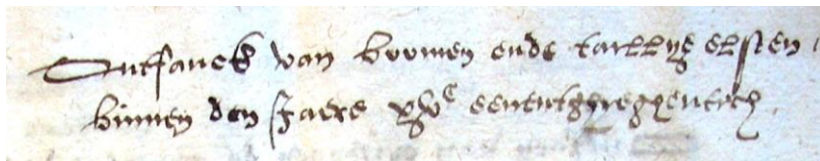 Ontfanck van boomen ende tailllye elsten
binnen den Jaere xvc eenentzeventich